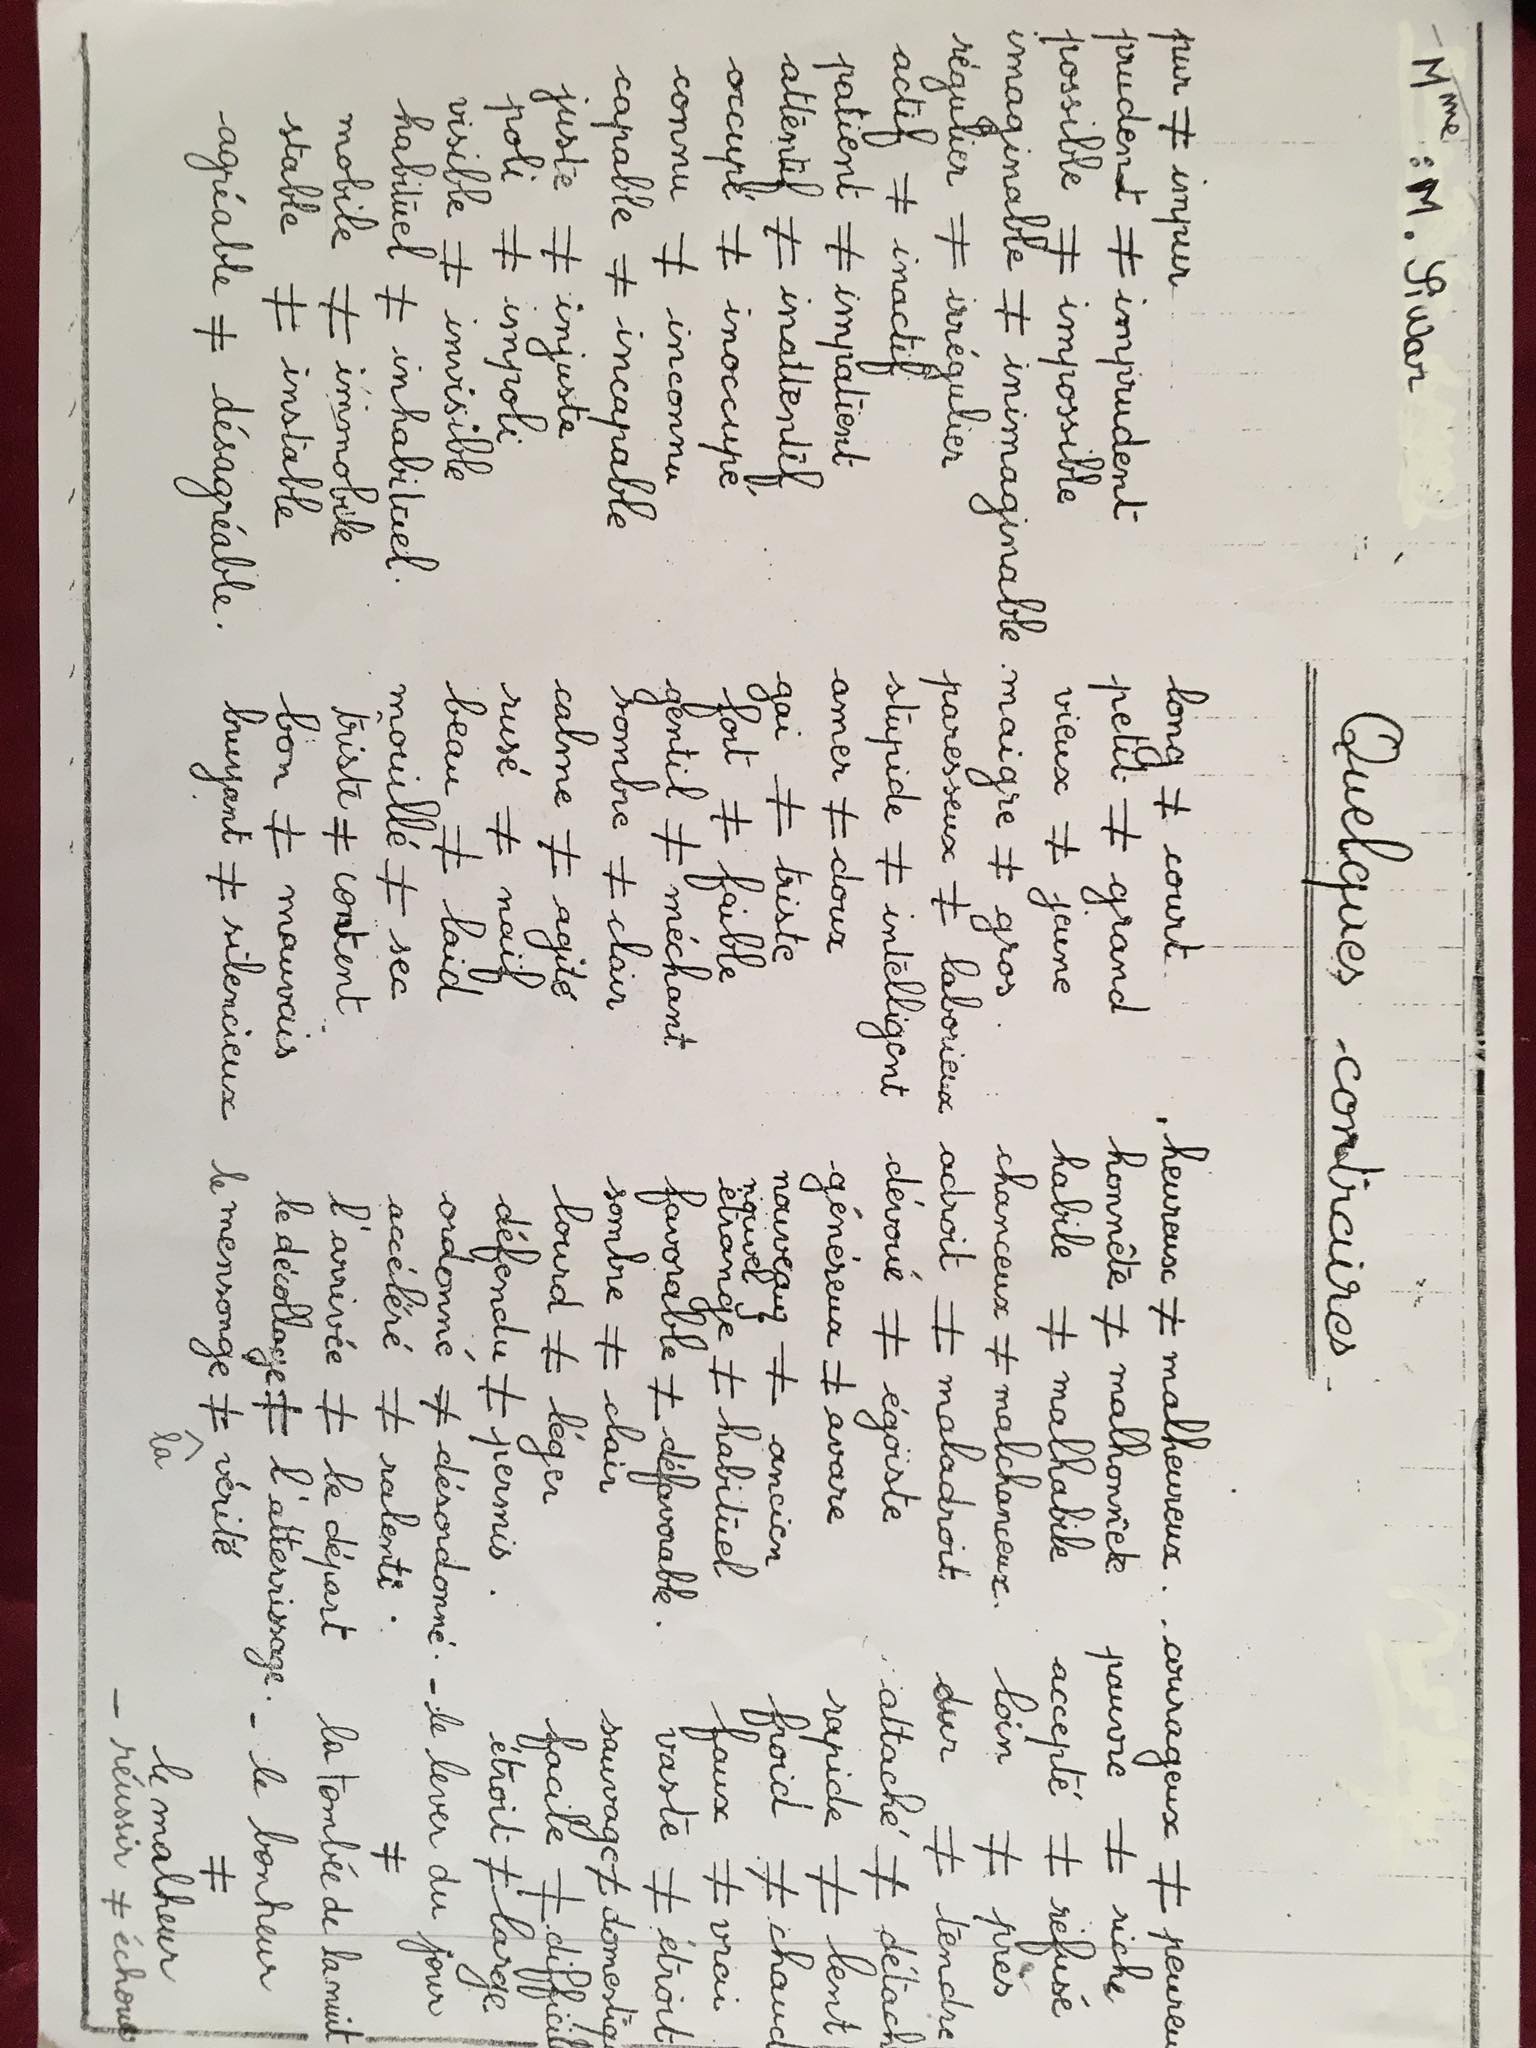 Mme : M. Siwar
Quelques contraires
pur ≠ impur
prudent ≠ imprudent
possible ≠ impossible
imaginable ≠ inimaginable
régulier ≠ irrégulier
actif ≠ inactif
patient ≠ impatient
attentif ≠ inattentif
occupé ≠ inoccupé
connu ≠ inconnu
capable ≠ incapable
juste ≠ injuste
poli ≠ impoli
visible ≠ invisible
habituel ≠ inhabituel.
mobile ≠ immobile
stable ≠ instable
agréable ≠ désagréable.
long ≠ court
petit ≠ grand
vieux ≠ jeune
maigre ≠ gros.
paresseux ≠ laborieux
stupide ≠ intelligent
amer ≠ doux
gai ≠ triste
fort ≠ faible
gentil ≠ méchant
sombre ≠ clair
calme ≠ agité
rusé ≠ naïf
beau ≠ laid
mouillé ≠ sec
triste ≠ content
bon ≠ mauvais
bruyant ≠ silencieux
heureux ≠ malheureux.
honnête ≠ malhonnête
habile ≠ malhabile
chanceux ≠ malchanceux.
adroit ≠ maladroit
dévoué ≠ égoiste
généreux ≠ avare
nouveau ≠ ancien
nouvel
étrange ≠ habituel
favorable ≠ défavorable.
sombre ≠ clair
lourd ≠ léger
défendu ≠ permis.
ordonné ≠ désordonné.
accéléré ≠ ralenti.
l'arrivée ≠ le départ
le décollage ≠ l'atterrissage.
le mensonge ≠ vérité
la
courageux ≠ peureu
pauvre ≠ riche
accepté ≠ refusé
loin ≠ près
dur ≠ tendre
attaché ≠ détach
rapide ≠ lent
froid ≠ chaud
faux ≠ vrai
vaste ≠ étroit
sauvage ≠ domestiqu
facile ≠ difficil
étroit ≠ large
- le lever du jour
≠
la tombée de la nuit
- le bonheur
≠
le malheur
- réussir ≠ échoue